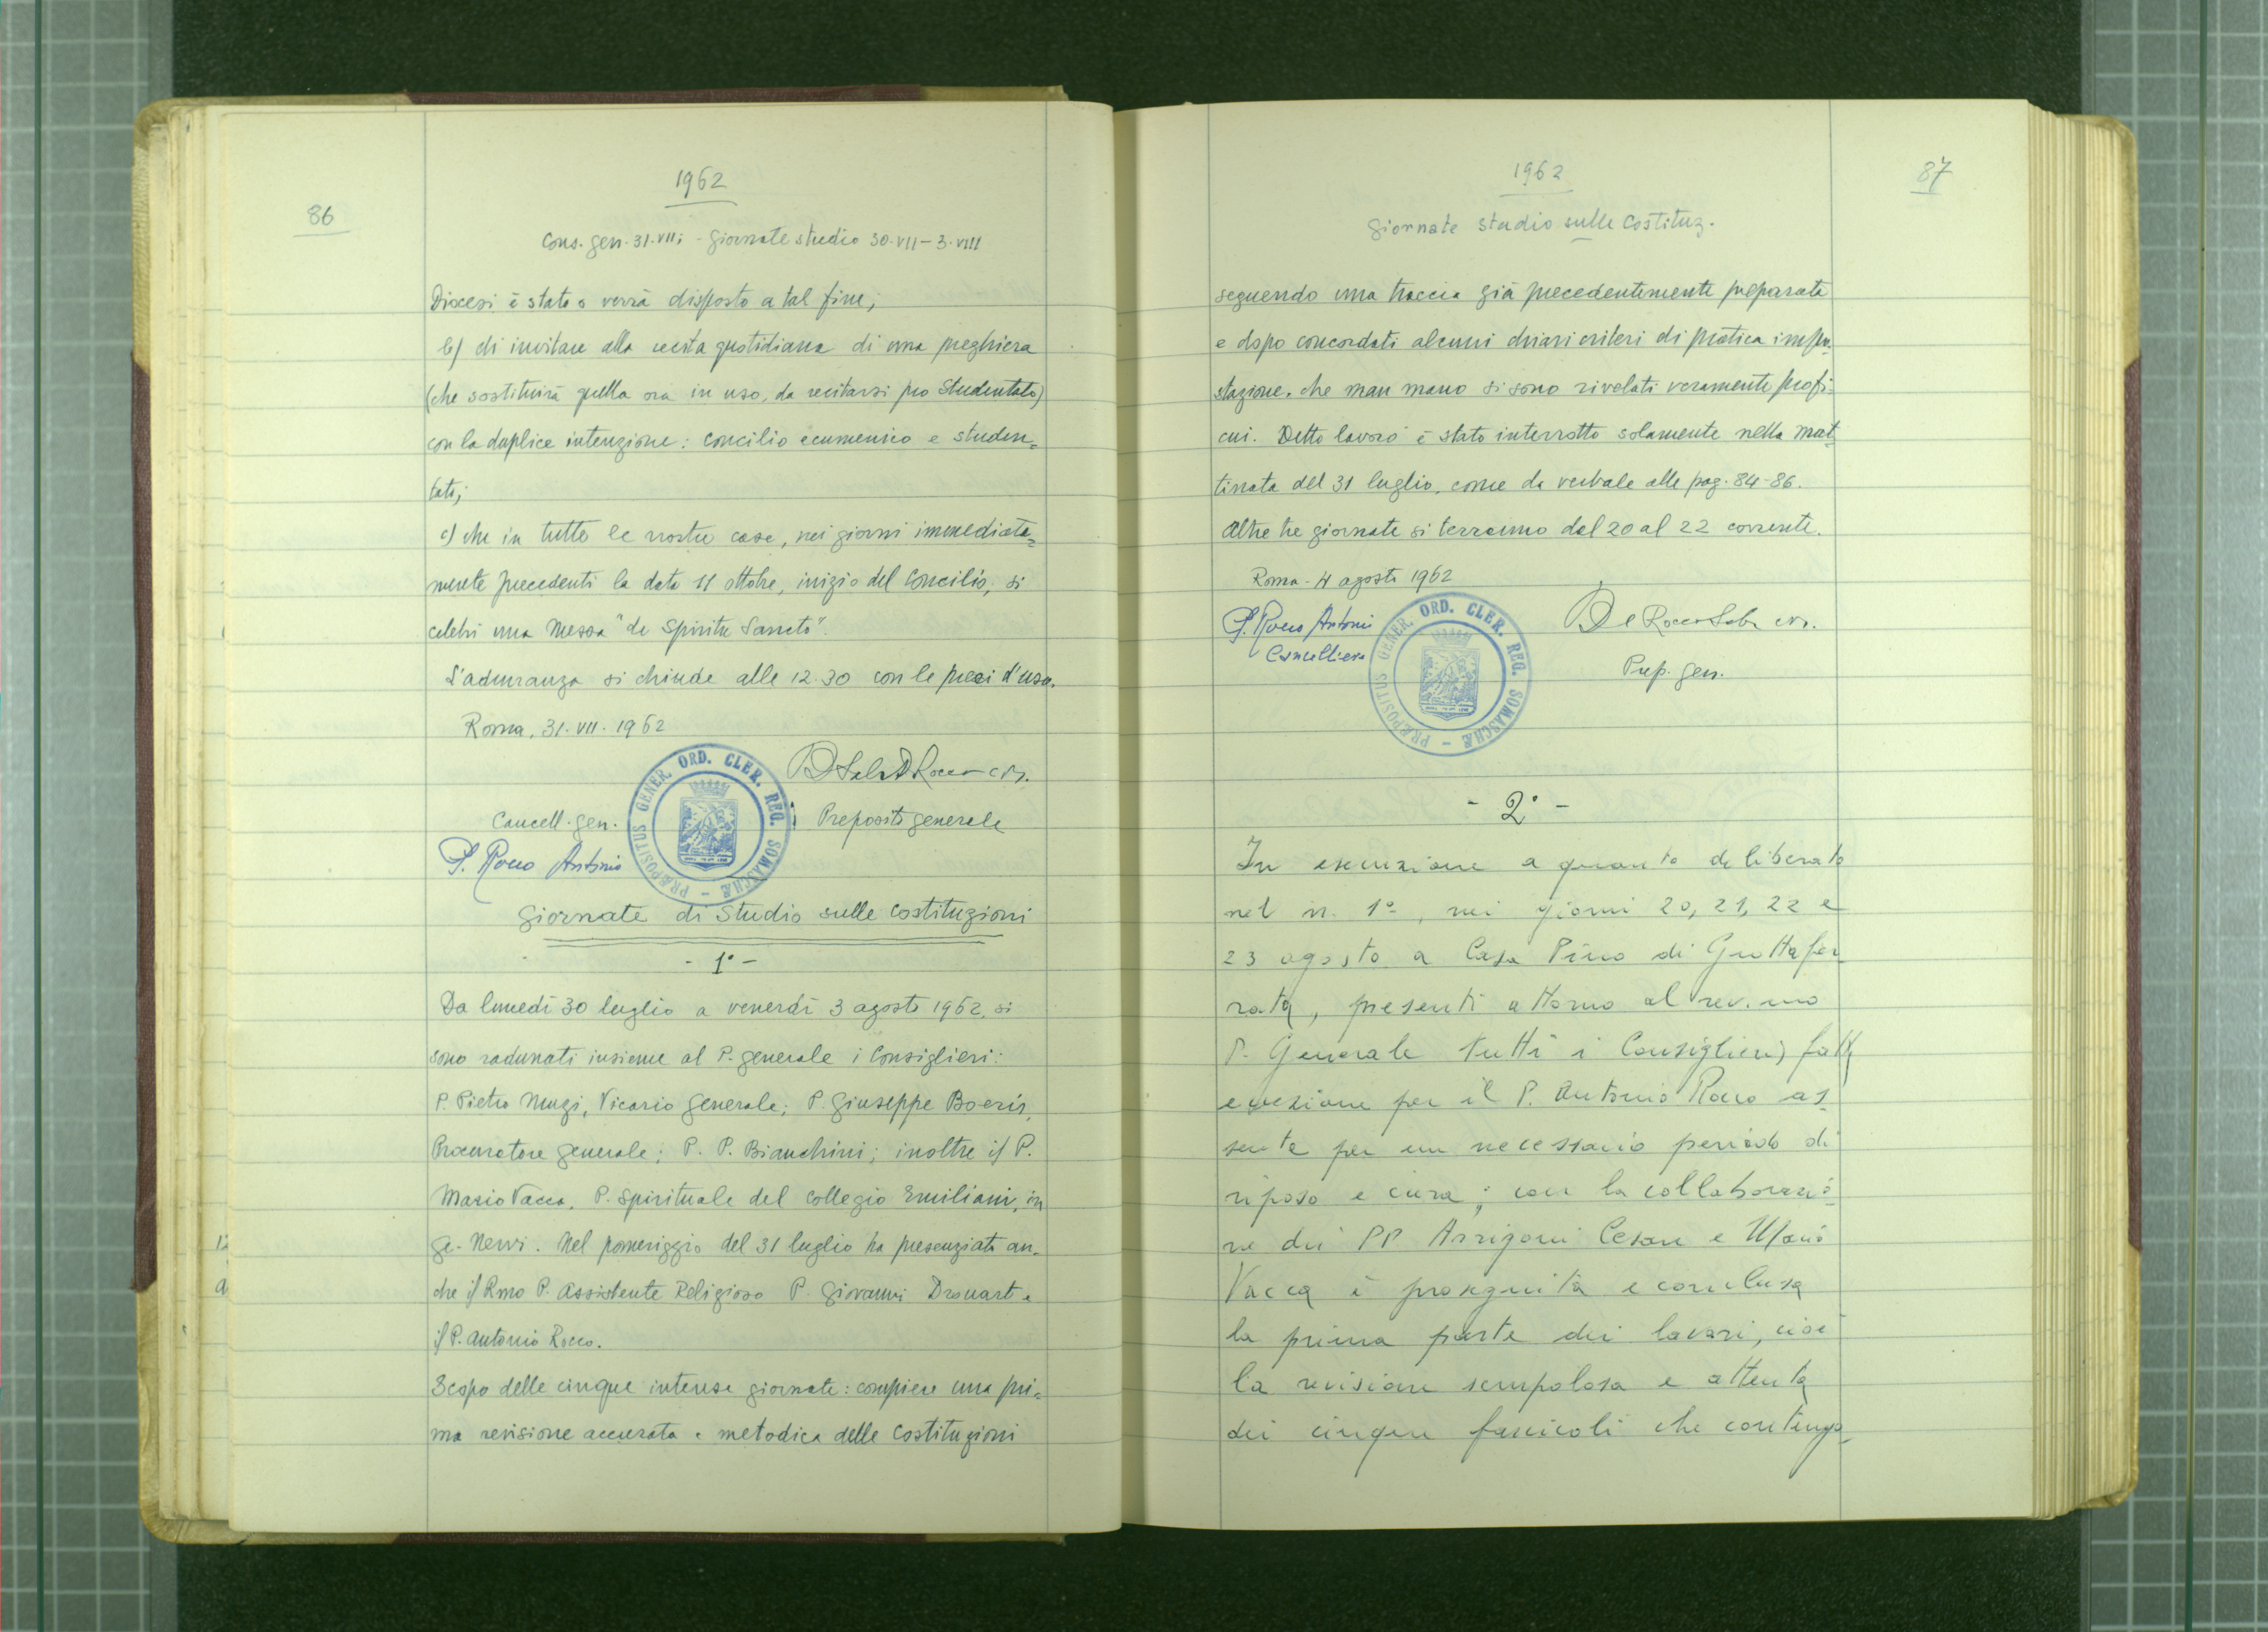 86
1962
Cons. gen. 31.VII; - Giornate studio 30.VII-3.VIII
Diocesi è stato o verrà disposto a tal fine;
b) di invitare alla recita quotidiana di una preghiera
(che sostituirà quella ora in uso, da recitarsi pro Studentato)
con la duplice intenzione: Concilio ecumenico e studen=
tato;
c) che in tutte le nostre case, nei giorni immediata=
mente precedenti la data 11 ottobre, inizio del Concilio, si
celebri una Messa "de Spiritu Sancto".
L'adunanza si chiude alle 12.30 con le preci d'uso.
Roma, 31.VII.1962
Cancell. gen.
Preposito generale
P. Rocco Antonio
PRÆPOSITUS GENER. ORD. CLER. REG. SOMASCHÆ
Giornate di Studio sulle Costituzioni
- 1° -
Da lunedì 30 luglio a venerdì 3 agosto 1962, si
sono radunati insieme al P. generale i Consiglieri:
P. Pietro Mugi, Vicario Generale; P. Giuseppe Boeris,
Procuratore generale; P. P. Bianchini; inoltre il P.
Mario Vacca, P. Spirituale del Collegio Emiliani, in
Ge-Nervi. Nel pomeriggio del 31 luglio ha presenziato an-
che il Rmo P. Assistente Religioso P. Giovanni Drouart e
il P. Antonio Rocco.
Scopo delle cinque intense giornate: compiere una pri=
ma revisione accurata e metodica delle Costituzioni
87
1962
Giornate studio sulle Costituz.
seguendo una traccia già precedentemente preparata
e dopo concordati alcuni chiari criteri di pratica impo-
stazione, che man mano si sono rivelati veramente profi-
cui. Detto lavoro è stato interrotto solamente nella mat-
tinata del 31 luglio, come da verbale alle pag. 84-86.
Altre tre giornate si terranno dal 20 al 22 corrente.
Roma - 4 agosto 1962
P. Rocco Antonio
Cancelliere
Prep. gen.
PRÆPOSITUS GENER. ORD. CLER. REG. SOMASCHÆ
- 2° -
In esecuzione a quanto deliberato
nel n. 1°, nei giorni 20, 21, 22 e
23 agosto a Casa Pino di Grottafer-
rata, presenti attorno al rev.mo
P. Generale tutti i Consiglieri, fatta
eccezione per il P. Antonio Rocco as-
sente per un necessario periodo di
riposo e cura; con la collaborazio-
ne dei PP Arrigoni Cesare e Mario
Vacca è proseguita e conclusa
la prima parte dei lavori, cioè
la revisione scrupolosa e attenta
dei cinque fascicoli che contengo-